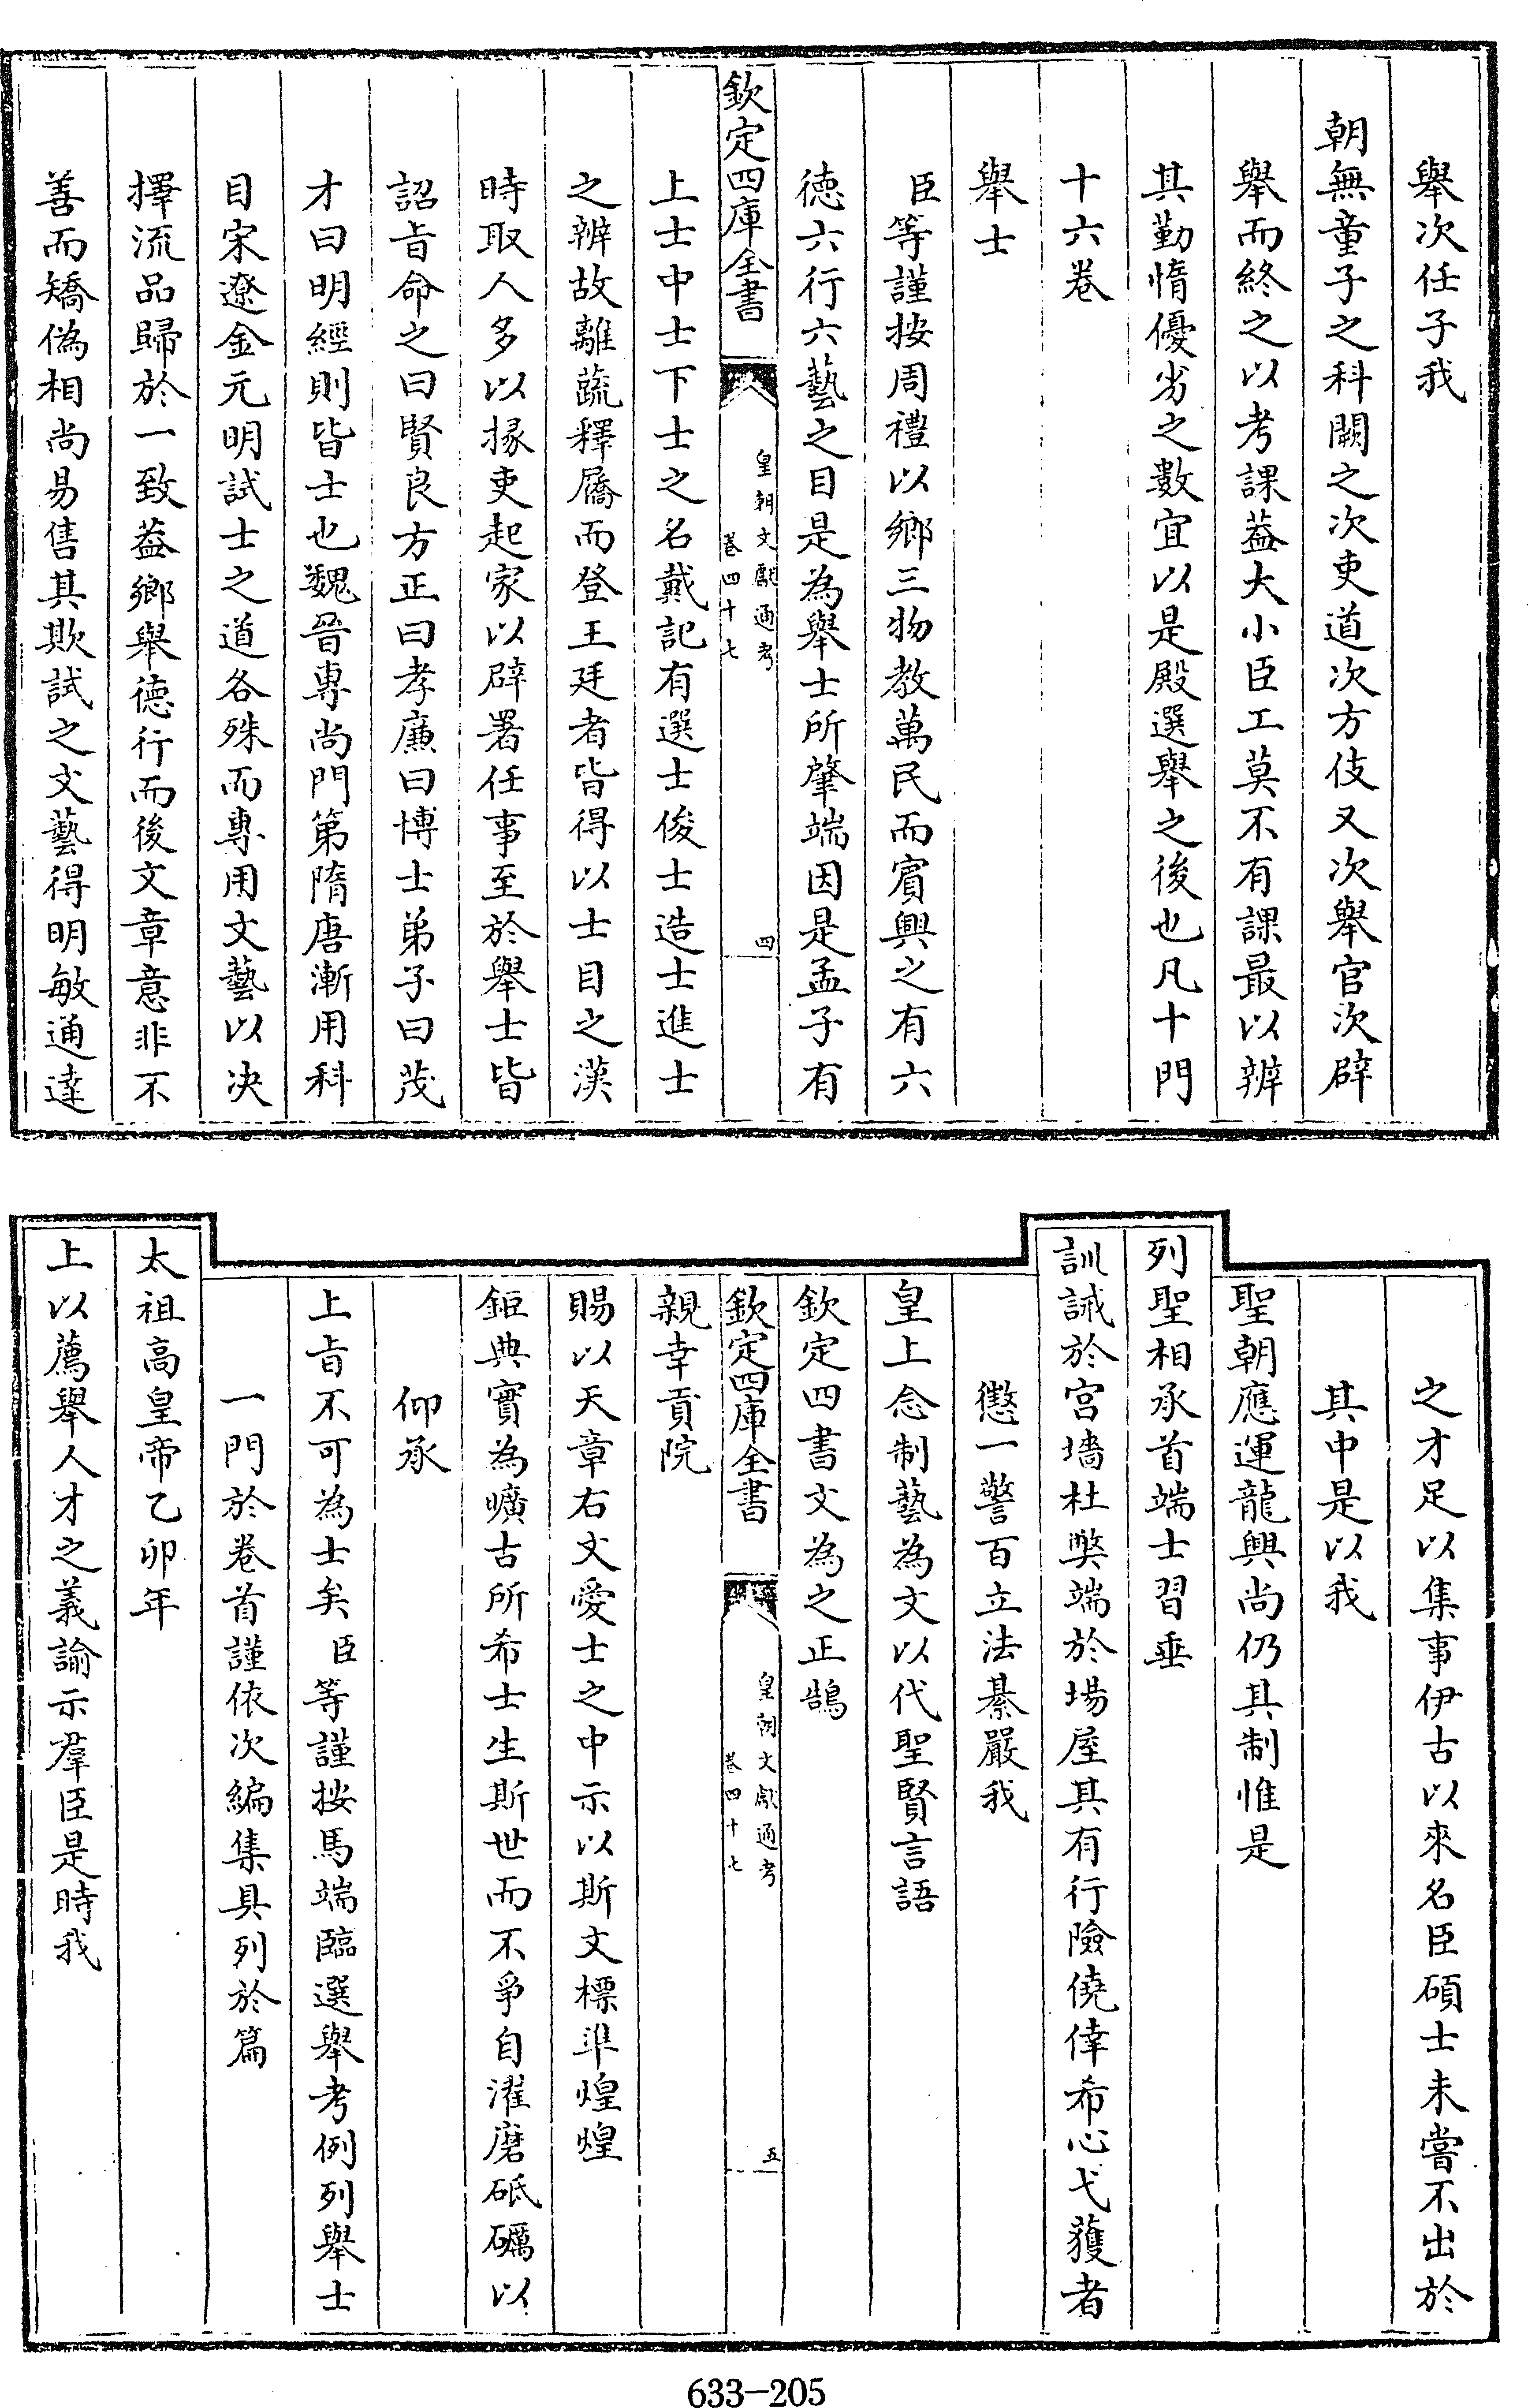 舉次任子我
朝無童子之科闕之次吏道次方伎又次舉官次辟
舉而終之以考課葢大小臣工莫不有課最以辨
其勤惰優劣之數宜以是殿選舉之後也凡十門
十六卷
舉士
臣等謹按周禮以鄉三物教萬民而賓興之有六
德六行六藝之目是為舉士所肇端因是孟子有
欽定四庫全書
皇朝文獻通考
卷四十七
四
上士中士下士之名戴記有選士俊士造士進士
之辨故離蔬釋屩而登王廷者皆得以士目之漢
時取人多以掾吏起家以辟署任事至於舉士皆
詔旨命之曰賢良方正曰孝廉曰博士弟子曰茂
才曰明經則皆士也魏晉專尚門第隋唐漸用科
目宋遼金元明試士之道各殊而專用文藝以决
擇流品歸於一致葢鄉舉德行而後文章意非不
善而矯偽相尚易售其欺試之文藝得明敏通達
之才足以集事伊古以來名臣碩士未嘗不出於
其中是以我
聖朝應運龍興尚仍其制惟是
列聖相承首端士習垂
訓誡於宮墻杜獘端於場屋其有行險僥倖希心弋獲者
懲一警百立法綦嚴我
皇上念制藝為文以代聖賢言語
欽定四書文為之正鵠
欽定四庫全書
皇朝文獻通考
卷四十七
五
親幸貢院
賜以天章右文愛士之中示以斯文標準煌煌
鉅典實為曠古所希士生斯世而不爭自濯磨砥礪以
仰承
上旨不可為士矣臣等謹按馬端臨選舉考例列舉士
一門於卷首謹依次編集具列於篇
太祖高皇帝乙卯年
上以薦舉人才之義諭示羣臣是時我
633-205